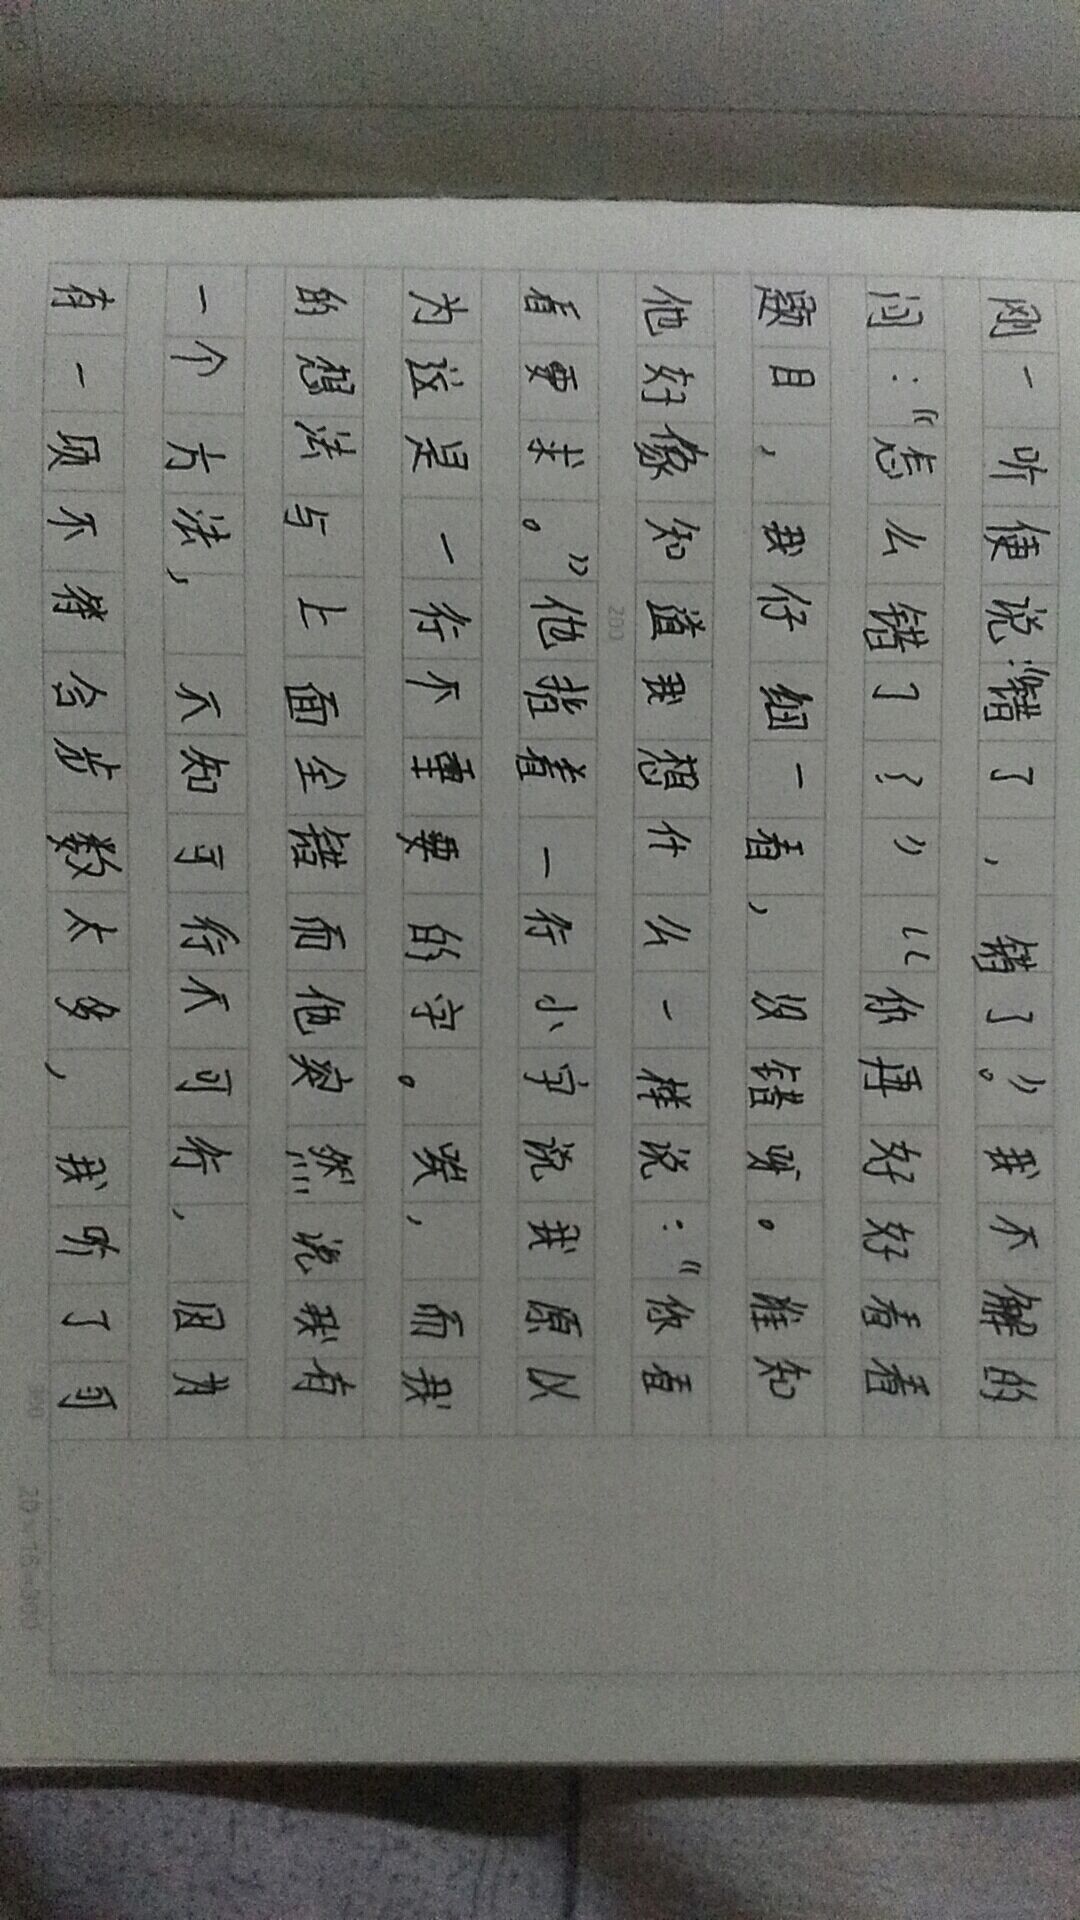 刚一听便说:“错了,错了。”我不解的
问:“怎么错了?”“你再好好看看
题目,我仔细一看,没错呀。谁知
他好像知道我想什么一样说:“你看
看要求。”他指着一行小字说我原以
为这是一行不重要的字。唉,而我
的想法与上面全错而他突然说我有
一个方法,不知可行不可行,因为
有一项不符合步数太多,我听了可
200
300
20×15=300